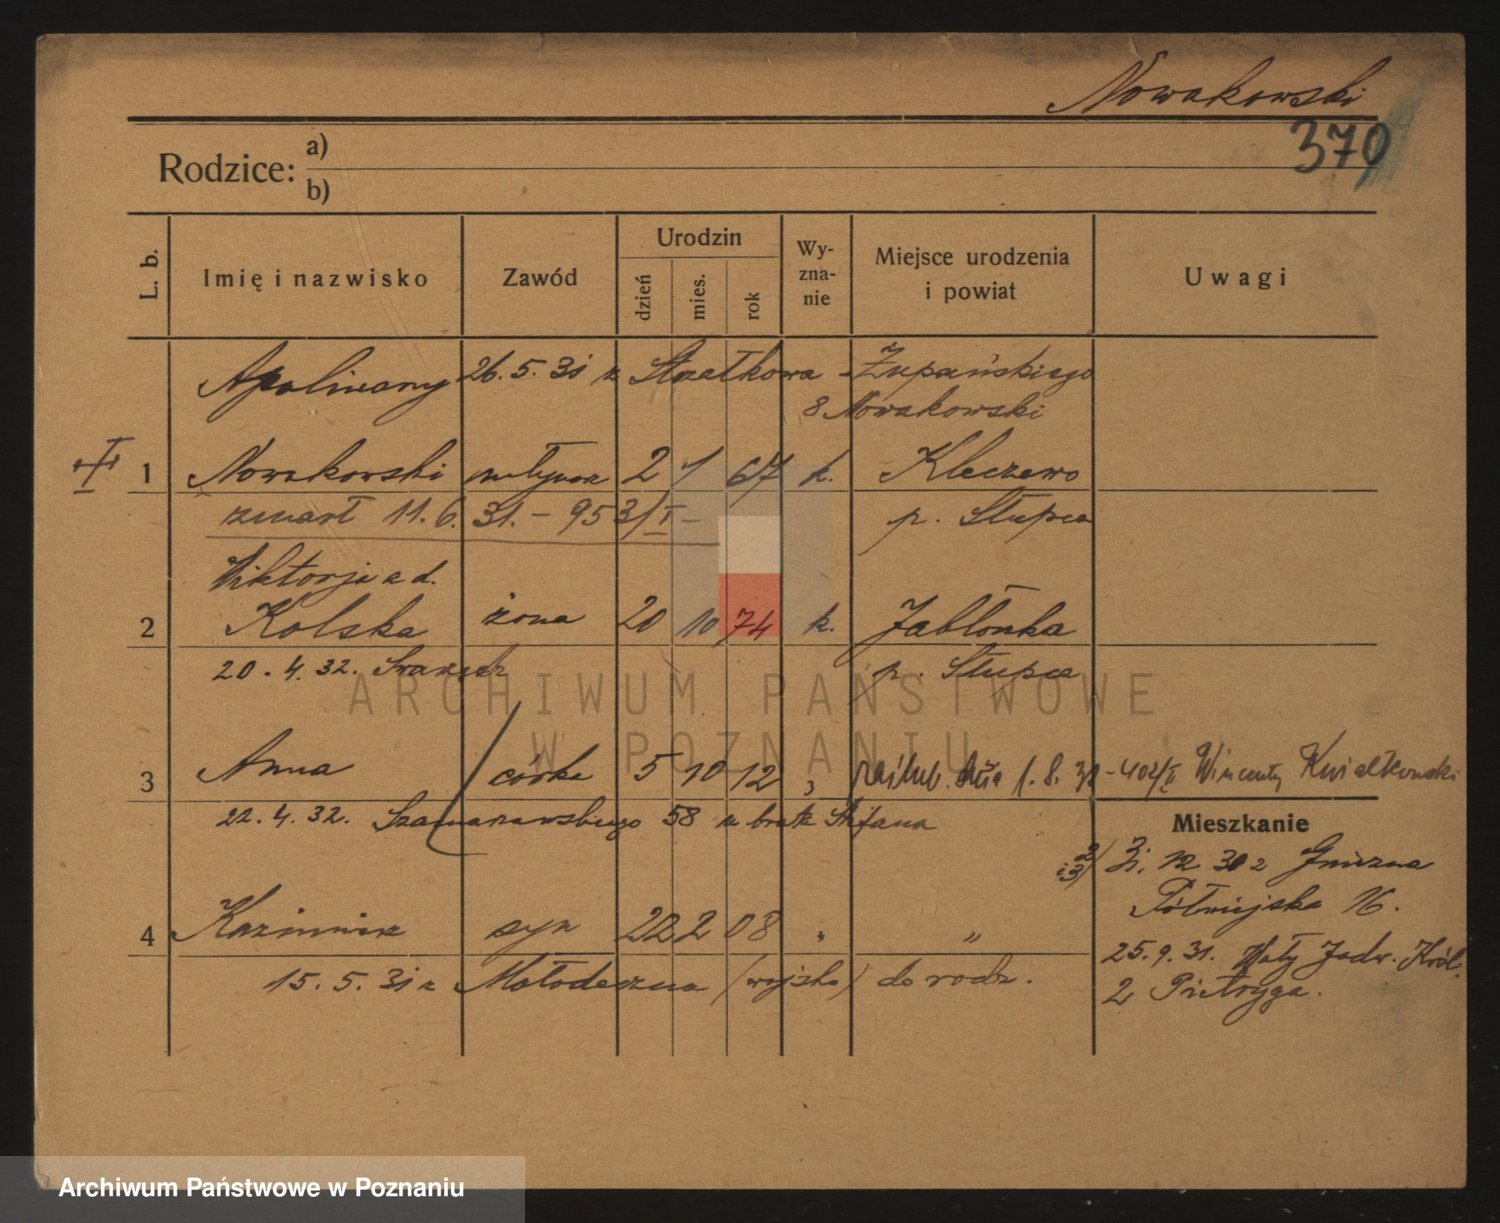 Nowakowski
370
Rodzice: a)
b)
L. b.
Imię i nazwisko
Zawód
Urodzin
dzień
mies.
rok
Wy-
zna-
nie
Miejsce urodzenia
i powiat
Uwagi
Apolinary 26. 5. 31 z Strzałkowa - Żupańskiego
8 Nowakowski
1 Nowakowski młynarz 2 1 67 k. Kleczewo
zmarł 11. 6. 31. - 953/I - p. Słupca
Wiktorja z d.
2 Kolska żona 20 10 74 k. Jabłonka
20. 4. 32. p. Słupca
3 Anna córka 5 10 12 " zaślub. dnia 1. 8. 32 - 402/II Wincenty Kwiatkowski
22. 4. 32. Szamarzewskiego 58 u brata Stefana
Mieszkanie
2/
i 3/
3. 12 30 z Gniezna
Półwiejska 16.
4 Kazimierz syn 22 2 08 " "
25. 9. 31. Wały Jadw. Król.
15. 5. 31 z Mołodeczna (wojsko) do rodz.
2 Pietryga.
ARCHIWUM PAŃSTWOWE
W POZNANIU
Archiwum Państwowe w Poznaniu